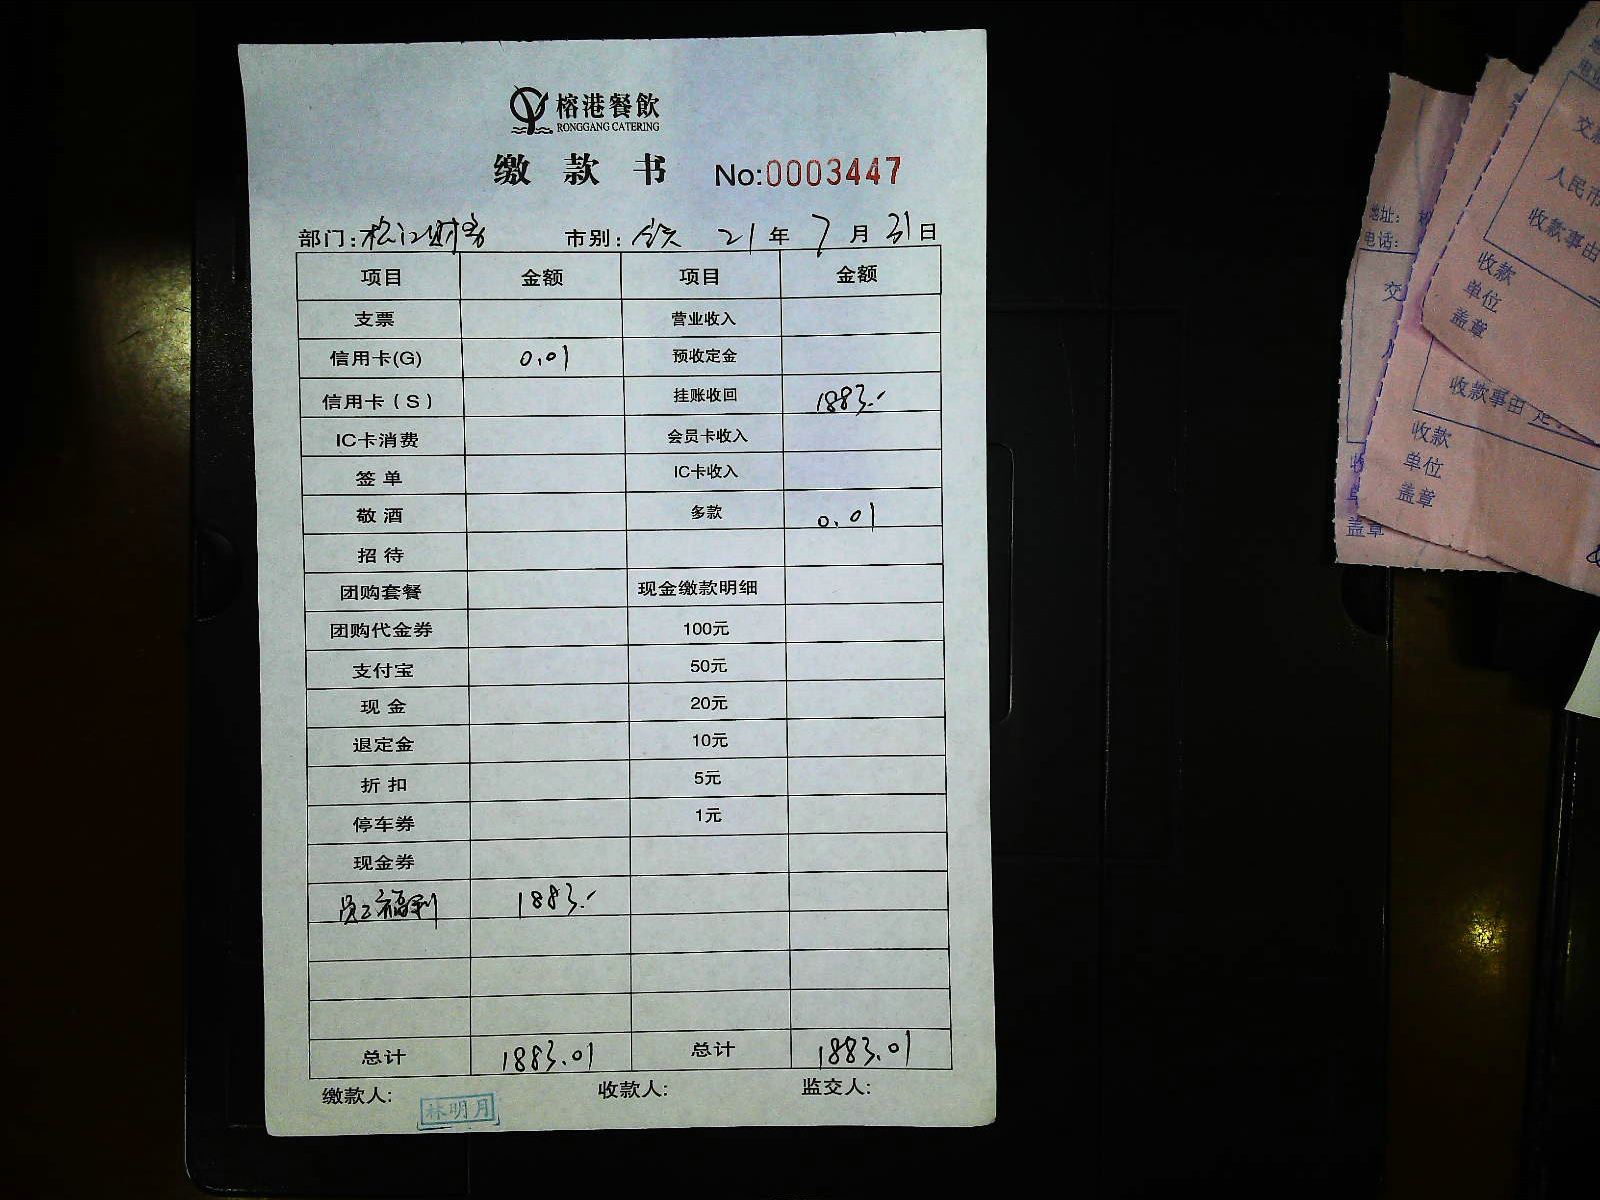 榕港餐飲
RONGGANG CATERING
缴 款 书 No:0003447
部门:松江财务 市别: 21 年 7 月 31 日
项目 金额 项目 金额
支票 营业收入
信用卡(G) 0.01 预收定金
信用卡(S) 挂账收回 1883.-
IC卡消费 会员卡收入
签单 IC卡收入
敬酒 多款 0.01
招待
团购套餐 现金缴款明细
团购代金券 100元
支付宝 50元
现金 20元
退定金 10元
折扣 5元
停车券 1元
现金券
员工福利 1883.-
总计 1883.01 总计 1883.01
缴款人: 收款人: 监交人:
林明月
地址:
电话:
交
人民币
收款事由
收款
单位
盖章
收款事由 定
收款
单位
盖章
盖章